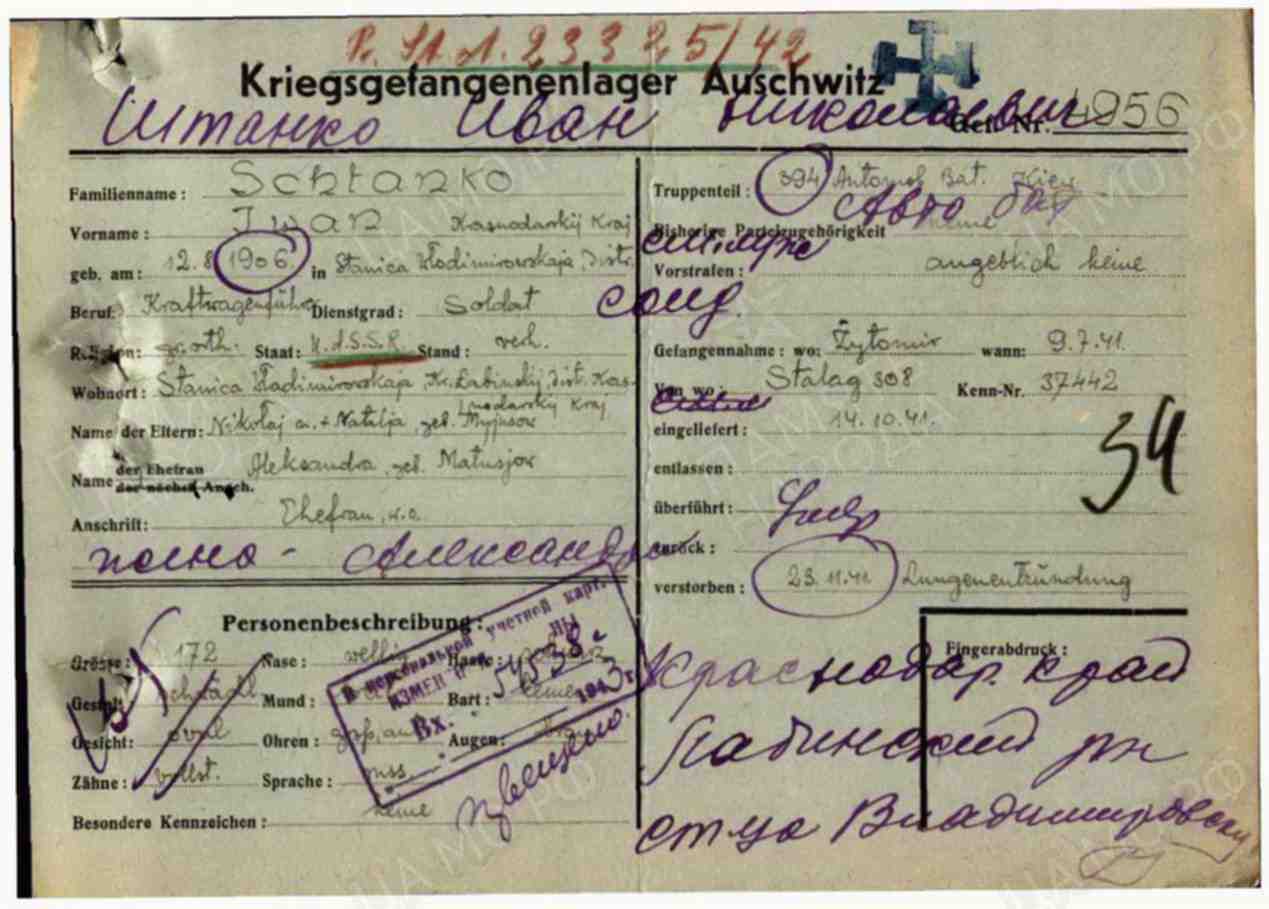 P. St. A. 23325/42
Kriegsgefangenenlager Auschwitz
Штанко Иван Николаевич
Gef.-Nr. 4956
Familienname: Schtanko
Vorname: Iwan
Kasnodarkij Kraj
geb. am: 12.8.1906 in Stanica Władimirowskaja, Distr.
Beruf: Kraftwagenführer Dienstgrad: Soldat
Religion: gr. orth. Staat: U.d.S.S.R. Stand: verh.
Wohnort: Stanica Władimirowskaja, Kr. Labinskij, Distr. Kas-
nodarskij Kraj
Name der Eltern: Nikołaj u. + Natalja, geb.
der Ehefrau
Name der nächst. Angeh. Aleksandra, geb. Matusjow
Anschrift: Ehefrau, w.o.
жена - Александра
Personenbeschreibung:
Grösse: 172 Nase: Haare:
Gestalt: Mund: Bart: keine
Gesicht: oval Ohren: Augen:
Zähne: vollst. Sprache: russ.
Besondere Kennzeichen: keine
К персональной учетной карт.
ИЗМЕН
Вх. 54538с 1943
Truppenteil: 394 Automob Bat. Kiew
Авто бат
Bisherige Parteizugehörigkeit keine
Vorstrafen: angeblich keine
солд.
Gefangennahme: wo: Żytomir wann: 9.7.41.
Von wo: Stalag 308 Kenn-Nr. 37442
eingeliefert: 14.10.41.
34
entlassen:
überführt:
zurück:
verstorben: 23.11.41 Lungenentzündung
Fingerabdruck:
Краснодар. край
Лабинский рн
стца Владимировская